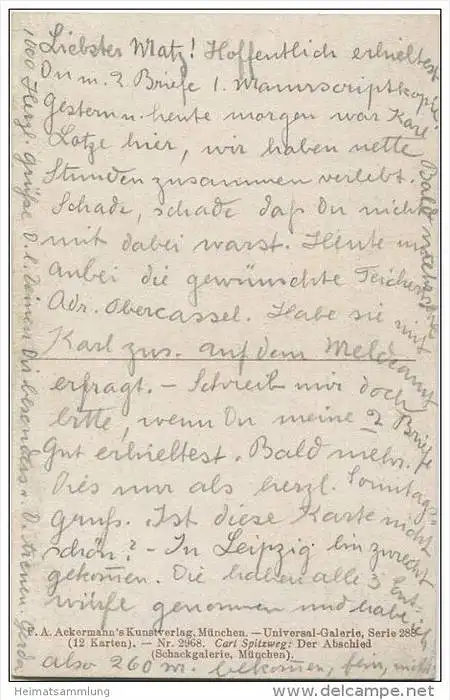 Liebster Matz! Hoffentlich erhieltest
Du m. 2 Briefe 1. Manuscriptkopie.
Gestern u. heute morgen war Karl
Lotze hier, wir haben nette
Stunden zusammen verlebt.
Schade, schade daß Du nicht
mit dabei warst. Heute nur
anbei die gewünschte
Adr. Obercassel. Habe sie mit
Karl zus. auf dem Meldeamt
erfragt. – Schreib mir doch
bitte, wenn Du meine 2 Briefe
Gut erhieltest. Bald mehr.
Dies nur als herzl. Sonntags-
gruß. Ist diese Karte nicht
schön? – In Leipzig bin zurecht
gekommen. Die haben alle 3 Ent-
würfe genommen und habe ich
F. A. Ackermann's Kunstverlag, München. — Universal-Galerie, Serie 28
(12 Karten). — Nr. 2968. Carl Spitzweg: Der Abschied
(Schackgalerie, München).
also 260 M. bekommen, fein, nicht
1000 Herzl. Grüße D. l. Deinen Dir besonders v. D. treuen Gerda
Bald
© www.delcampe.net
Heimatsammlung